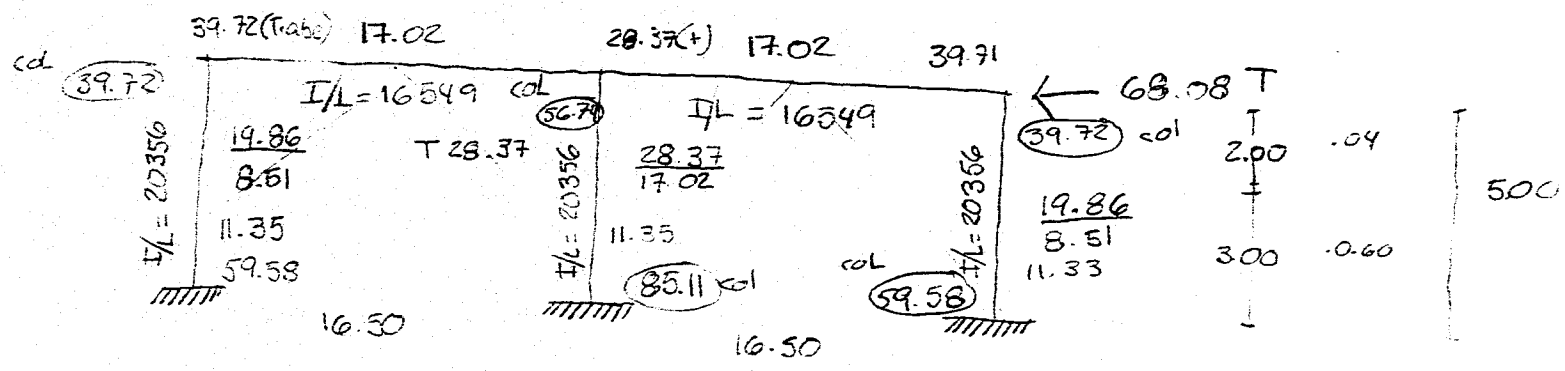 39.72(Trabe) 17.02 28.37(+) 17.02 39.71
col 39.72 I/L=16549 col 56.74 I/L = 16549 68.08 T
39.72 col
I/L=20356 19.86 T 28.37 I/L=20356 28.37 I/L=20356 2.00 .04
8.51 17.02 19.86 5.00
11.35 11.35 8.51 3.00 .0.60
59.58 85.11 col col 59.58 11.33
16.50 16.50